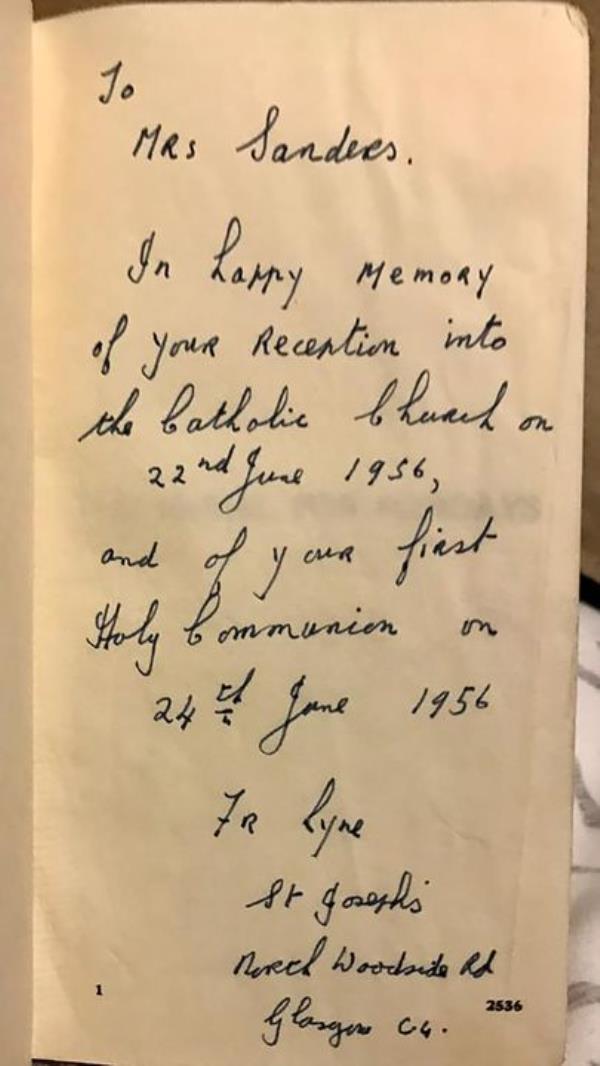 To
Mrs Sanders.
In happy memory
of your Reception into
the Catholic Church on
22nd June 1956,
and of your first
Holy Communion on
24th June 1956
Fr Lyne
St Joseph's
North Woodside Rd
Glasgow C4.
1
2536